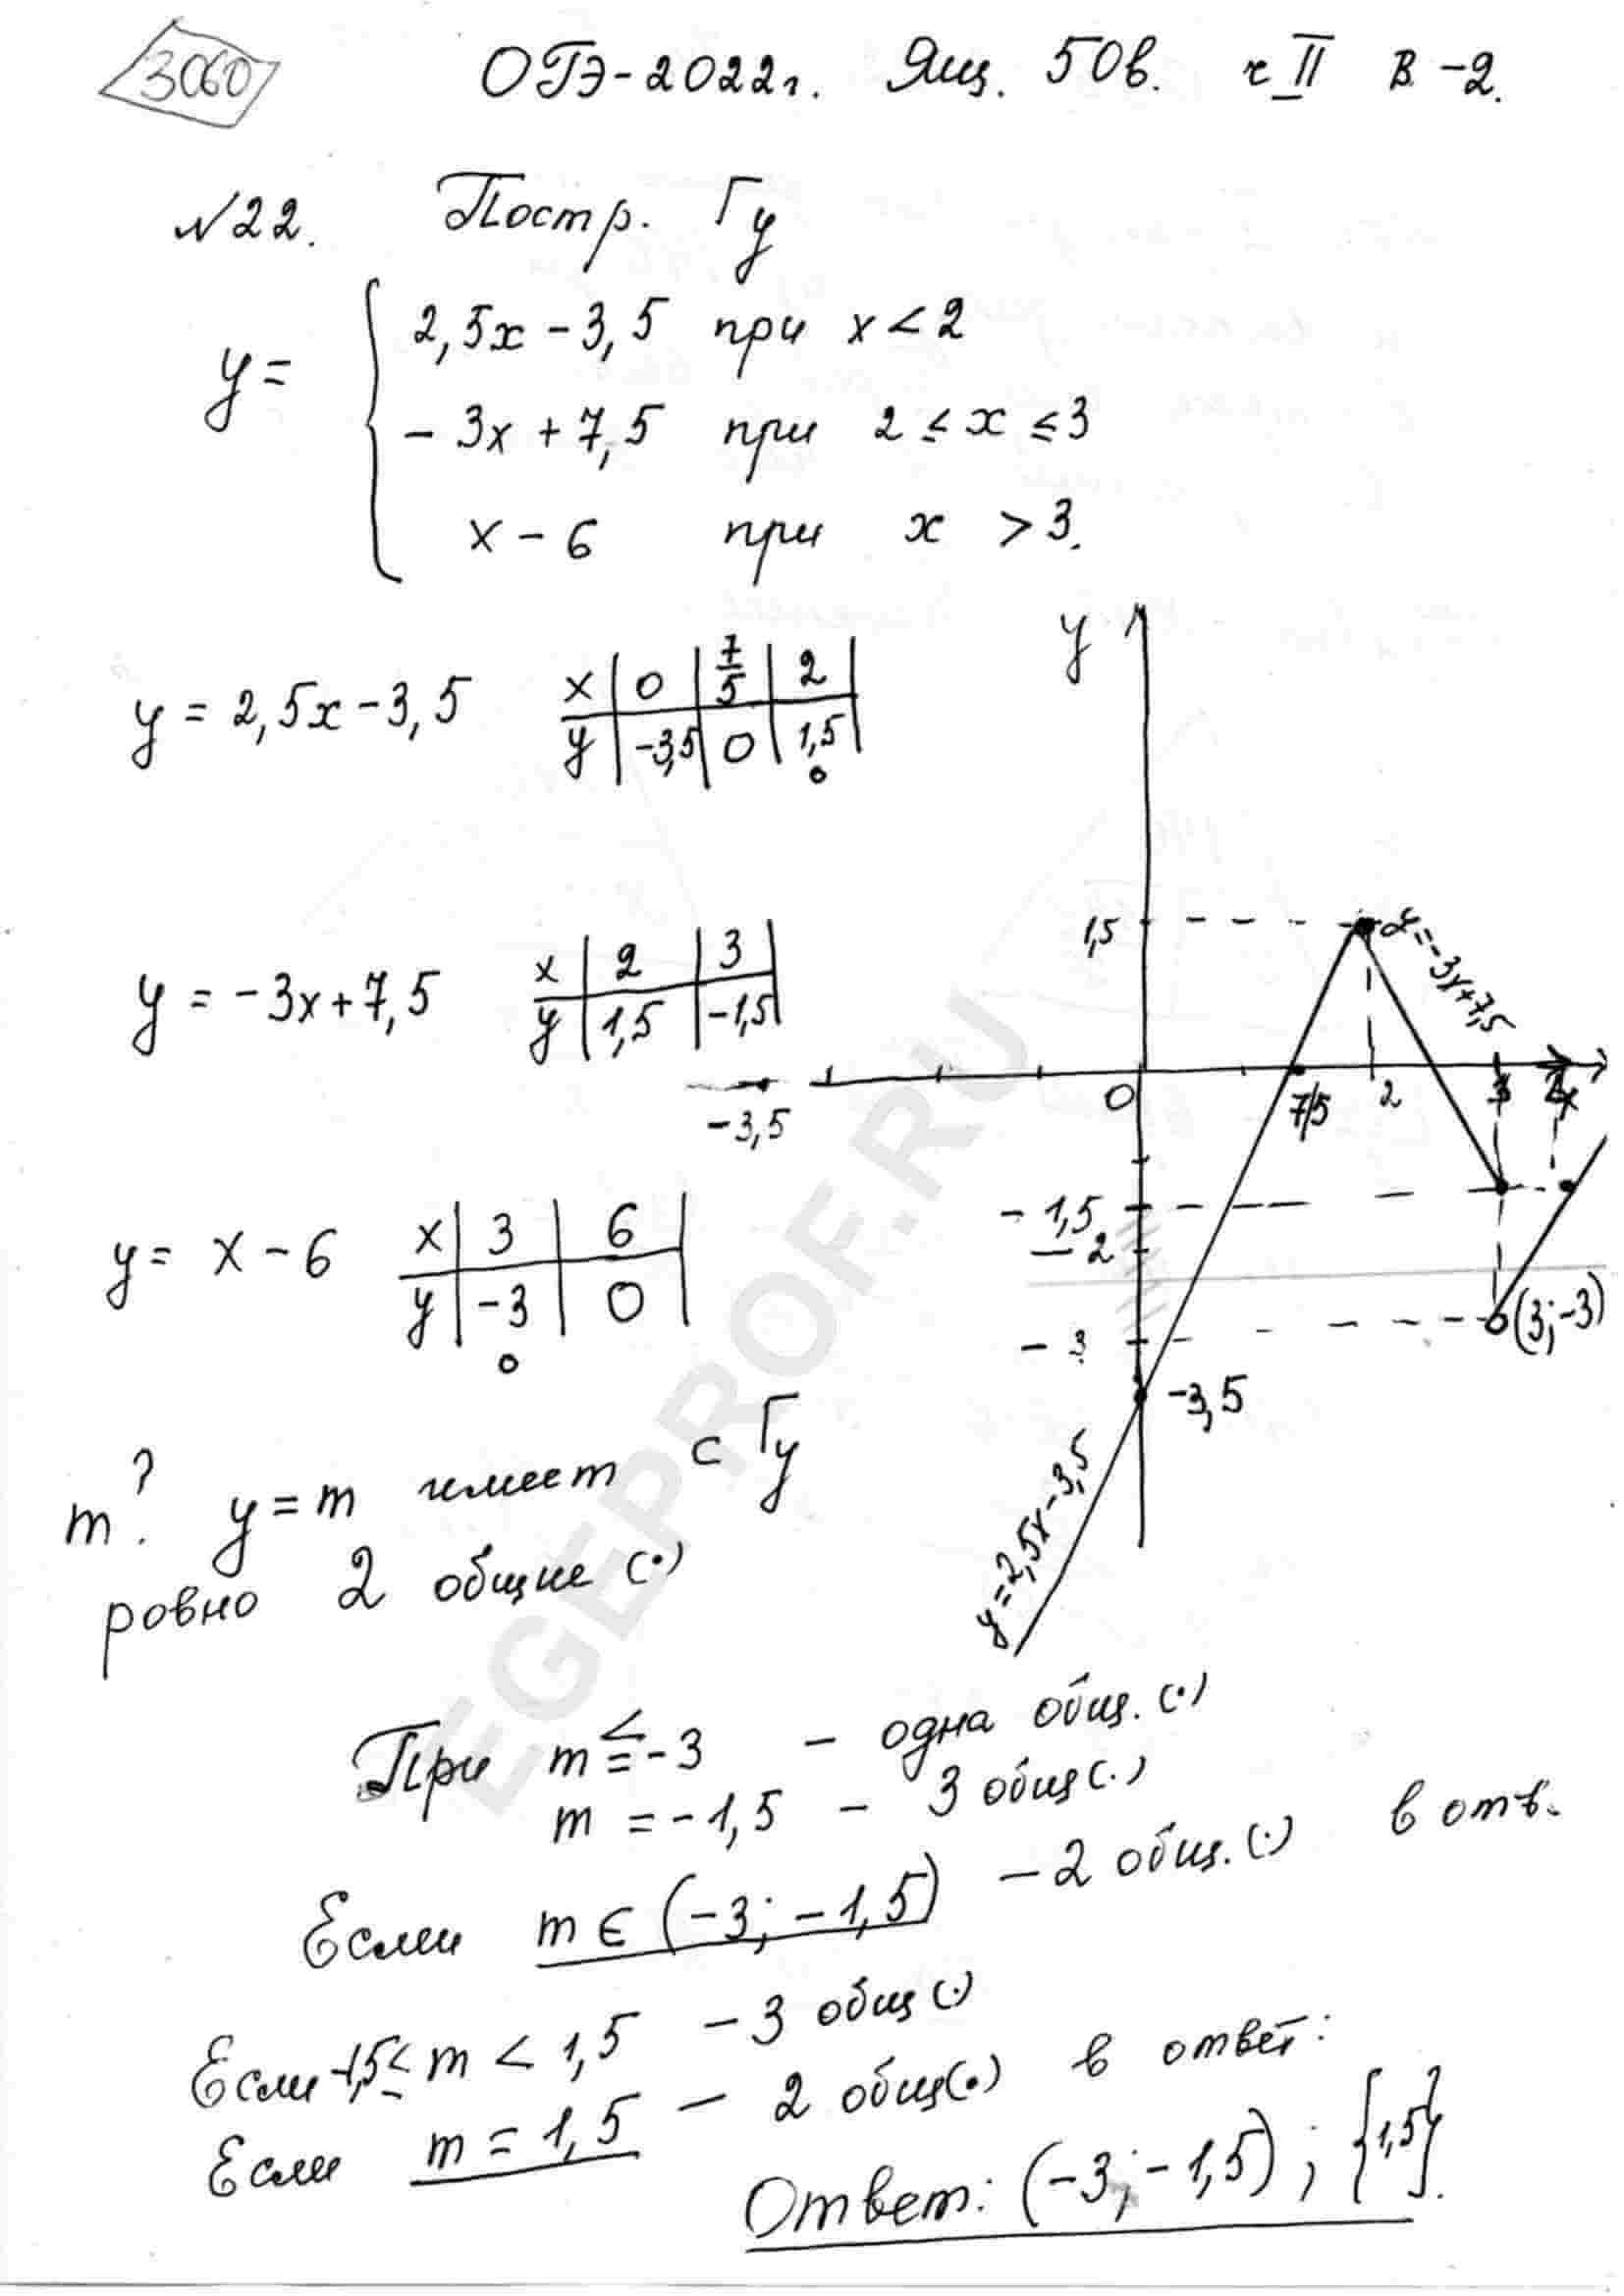 3060 ОГЭ-2022г. Ящ. 50в. ч II В-2.
№22. Постр. Гу
y =
2,5x - 3,5 при x < 2
- 3x + 7,5 при 2 ≤ x ≤ 3
x - 6 при x > 3.
y = 2,5x - 3,5
x 0 7/5 2
y -3,5 0 1,5
y = -3x + 7,5
x 2 3
y 1,5 -1,5
-3,5
y = x - 6
x 3 6
y -3 0
y
1,5
y = -3x+7,5
0 7/5 2 3 x
- 1,5
- 2
- 3
(3; -3)
-3,5
y = 2,5x - 3,5
m ? y = m имеет с Гу
ровно 2 общие (•)
При m ≤ -3 - одна общ. (•)
m = -1,5 - 3 общ (•)
Если m ∈ (-3; -1,5) - 2 общ. (•) в отв.
Если -1,5 ≤ m < 1,5 - 3 общ (•)
Если m = 1,5 - 2 общ (•) в ответ:
Ответ: (-3; -1,5) ; {1,5}.
EGEPROF.RU